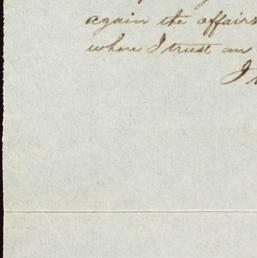 again the affairs
when I trust an
I